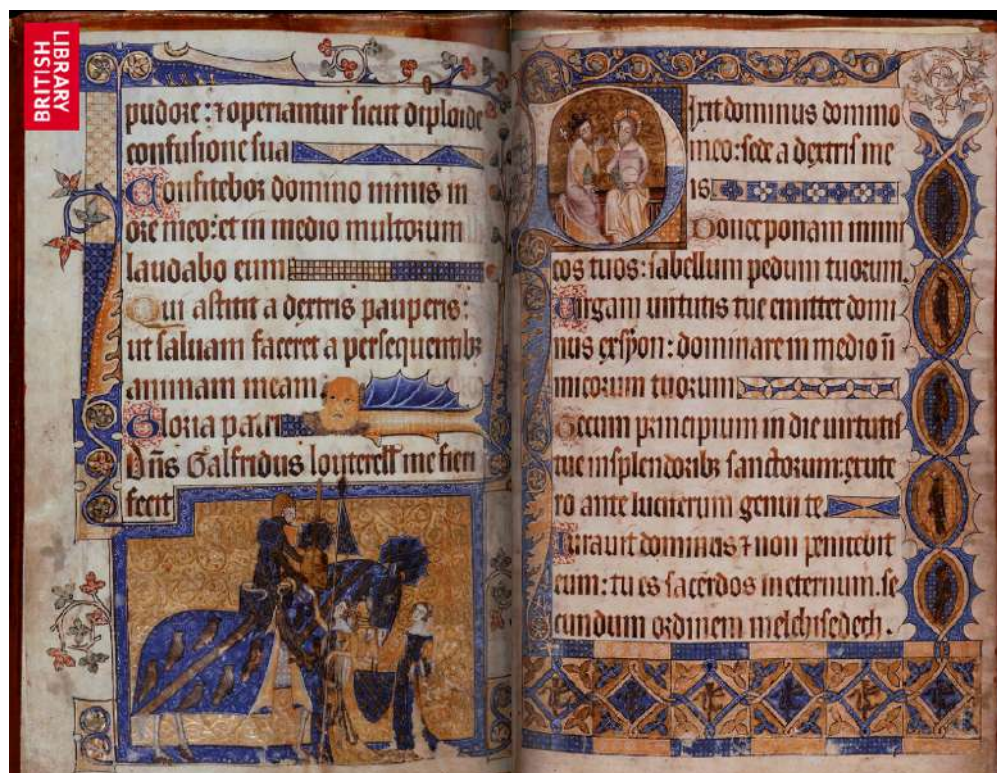 BRITISH
LIBRARY
pudore: ⁊ operiantur sicut diploide
confusione sua
Confitebor domino nimis in
ore meo: et in medio multorum
laudabo eum
Qui astitit a dextris pauperis:
ut saluam faceret a persequentibꝫ
animam meam.
Gloria patri
Dn̄s Galfridus louterell me fieri
fecit
Dixit dominus domino
meo: sede a dextris me
is
Donec ponam inimi
cos tuos: scabellum pedum tuorum.
Uirgam uirtutis tue emittet domi
nus ex syon: dominare in medio in̄
imicorum tuorum
Tecum principium in die uirtutis
tue in splendoribꝫ sanctorum: ex ute
ro ante luciferum genui te.
Iurauit dominus ⁊ non penitebit
eum: tu es sacerdos in eternum. se
cundum ordinem melchisedech.